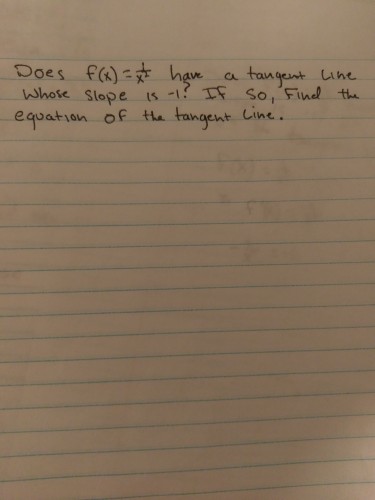 Does f(x) = 1/x² have a tangent line
whose slope is -1? If so, Find the
equation of the tangent line.